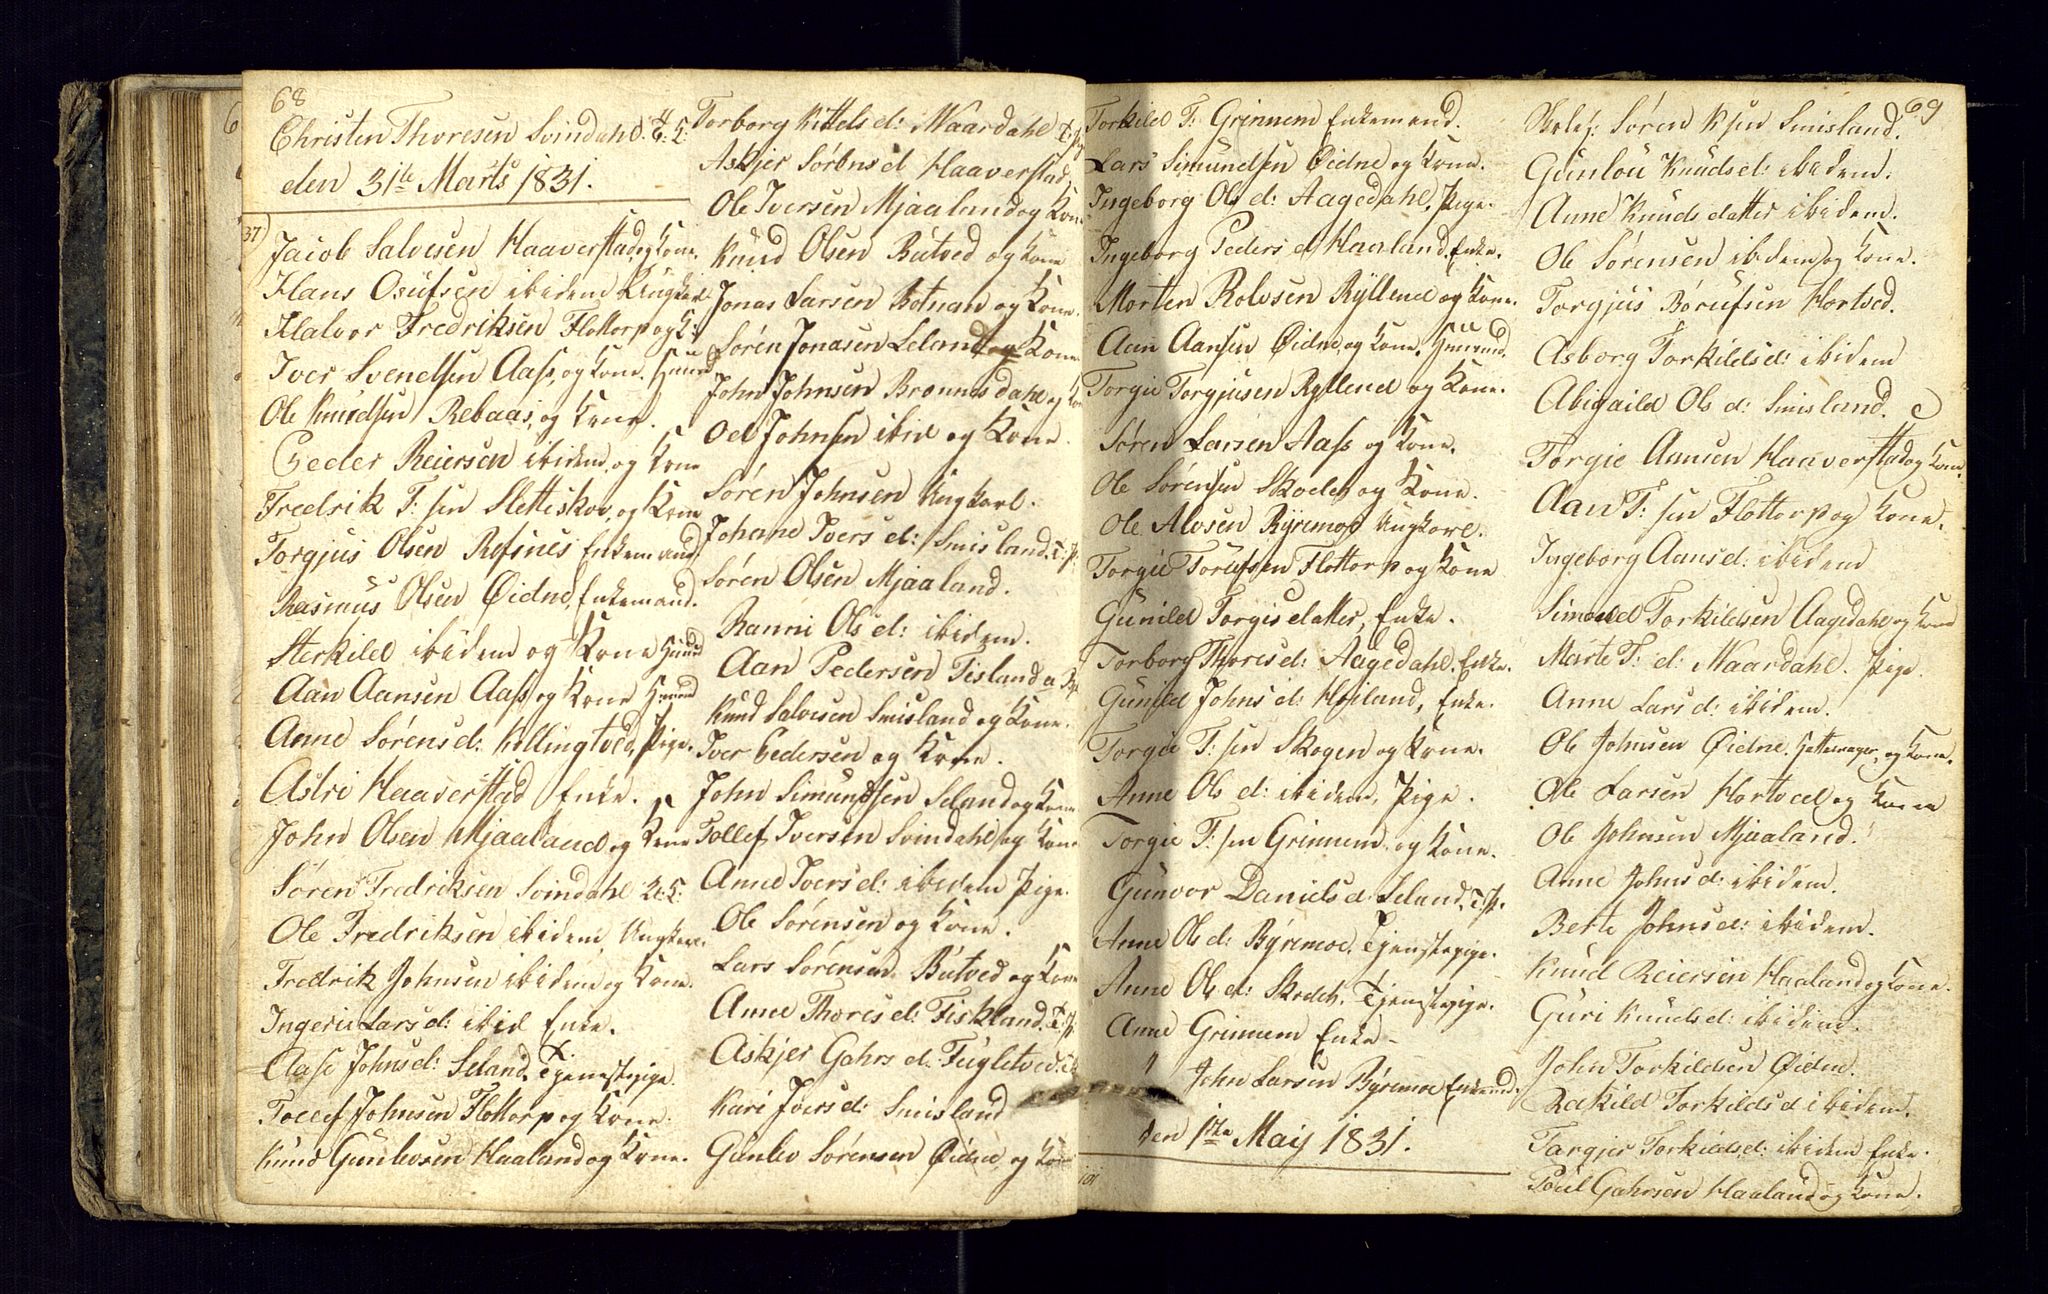 68
Christen Thoresen Svindahl. T: K:
den 31te Marts 1831.
37
Jacob Salvesen Haaverstad og Kone.
Hans Osufsen ibidem Ungkarl
Halvor Fredriksen Flottorp og K:
Iver Svendsen Aas, og Kone. Huusmd
Ole Knudsen Rebaas, og Kone.
Peder Reiersen ibidem, og Kone
Fredrik T: sen Slettiskov, og Kone
Torgjus Olsen Refsnes Enkemand
Rasmus Olsen Øidne, Enkemand.
Sterkild ibidem og Kone Huusmd
Aan Aansen Aas og Kone Huusmd
Anne Sørensd: Kollingtved, Pige.
Astri Haaverstad Enke.
John Olsen Mjaaland og Kone
Søren Fredriksen Svindahl
Ole Fredriksen, ibidem, Ungkarl.
Fredrik Johnsen ibidem og Kone.
Ingerie Larsd: ibid Enke.
Aase Johnsd: Seland, Tjenestepige.
Tollef Johnsen Flottorp og Kone
Knud Gunlevsen Haaland og Kone.
Torborg Kittelsd: Naardahl T: Pig
Askjer Sørensd Haaverstad.
Ole Iversen Mjaaland og Kone
Knud Olsen Butved og Kone
Jonas Larsen Botnan og Kone.
Søren Jonasen Seland og Kone
John Johnsen Bronnesdahl og Ko
Oel Johnsen ibid og Kone.
Søren Johnsen Ungkarl.
Johane Iversd: Smisland. T: P:
Søren Olsen Mjaaland.
Ranni Olsd: ibidem.
Aan Pedersen Fisland
Knud Salvesen Smisland og Kone.
Iver Pedersen og Kone.
John Simundsen Seland og Kone
Tollef Iversen Svindahl og Kone
Anne Iversd: ibidem Pige.
Ole Sørensen og Kone.
Lars Sørensen Butved og Kone
Anne Thoresd: Fiskland, T: P:
Askjer Gahrsd: Fugletved T:
Kari Iversd: Smisland
Gunlev Sørensen Øidne, og Kone
69
Torkild T: Grimnem Enkemand.
Lars Simundsen Øidne og Kone.
Ingeborg Olsd: Aagedahl, Pige.
Ingeborg Pedersd Haaland, Enke.
Morten Rolvsen Ryllend og Kone.
Aan Aansen Øidne, og Kone, Huusmd.
Torgie Torgjusen Ryllend og Kone.
Søren Larsen Aas og Kone.
Ole Sørensen Skodet og Kone.
Ole Alvsen Byremoe Ungkarl.
Torgie Torufsen Flottorp og Kone
Gunild Torgisdatter, Enke.
Torborg Thoresd: Aagedahl. Enke.
Gunild Johnsd: Høiland, Enke.
Torgie T: sen Skogen og Kone.
Anne Olsd: ibidem, Pige.
Torgie T: sen Grimnem, og Kone.
Gunvor Danielsd: Seland, T: P.
Anne Olsd: Byremoe, Tjenestepige.
Anne Olsd: Skodet, Tjenestepige.
Anne Grimnem Enke
" John Larsen Byremoe Enkemd:
den 1ste Maij 1831.
Søren K sen Smisland.
Gunlou Knudsd: ibidem.
Anne Knudsdatter ibidem.
Ole Sørensen ibidem og Kone.
Torgjus Børufsen Hortved.
Asborg Torkildsd: ibidem
Abigaild Olsd: Smisland.
Torgie Aansen Haaverstad og Kone.
Aan T: sen Flottorp og Kone.
Ingeborg Aansd: ibidem
Simond Torkildsen Aagedahl og Kone
Marte T: d: Naardahl. Pige.
Anne Larsd: ibidem.
Ole Johnsen Øidne, Hattemager, og Kone.
Ole Larsen Hortved og Kone
Ole Johnsen Mjaaland.
Anne Johnsd: ibidem.
Berte Johnsd: ibidem.
Knud Reiersen Haaland og Kone.
Guri Knudsd: ibidem.
John Torkildsen Øidne.
Rakild Torkildsd ibidem.
Targjer Torkildsd: ibidem Enke.
Poul Gahrsen Haaland og Kone.